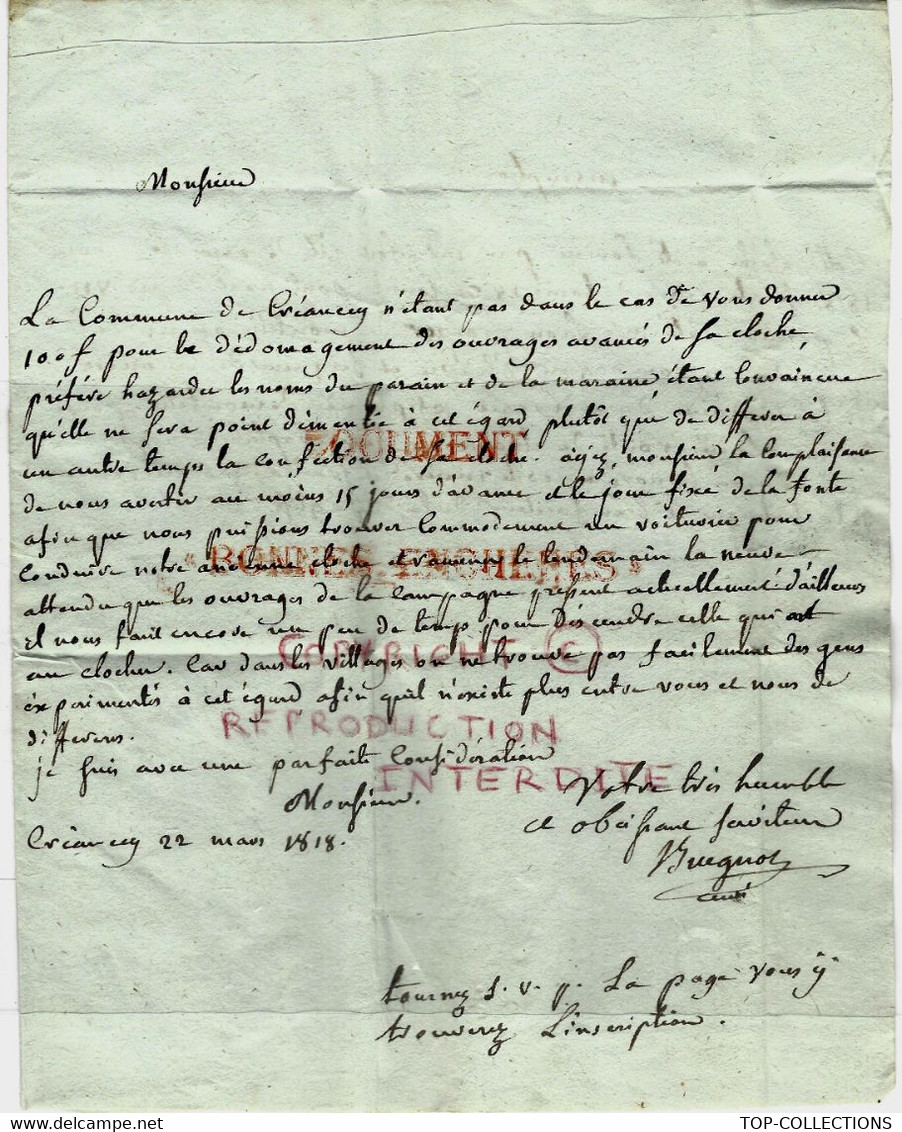 Monsieur
La Commune de Créancey n'étant pas dans le cas de vous donner
100f pour le dédomagement des ouvrages avancés de sa cloche,
préfére hazarder les noms du parain et de la maraine étant convaincue
qu'elle ne sera point démentie à cet égard plutôt que de differer à
un autre temps la confection de sa cloche. ayez, monsieur la complaisance
DOCUMENT
de nous avertir au moins 15 jours d'avance et le jour fixé de la fonte
afin que nous puissions trouver commodement un voiturier pour
conduire notre ancienne cloche et ramener le lendemain la neuve
BONNES ENCHERES
attendu que les ouvrages de la campagne pressent actuellement d'ailleurs
il nous faut encore un peu de temps pour déscendre celle qui est
COPYRIGHT ©
au clocher. Car dans les villages on ne trouve pas facilement des gens
éxperimentés à cet égard afin qu'il n'existe plus entre vous et nous de
differens.
REPRODUCTION
je suis avec une parfaite considération
INTERDITE
Monsieur.
Votre très humble
et obeissant serviteur
Créancey 22 mars 1818.
Bueqnot
curé
tournez s. v. p. La page vous y
trouverez L'inscription.
TOP-COLLECTIONS